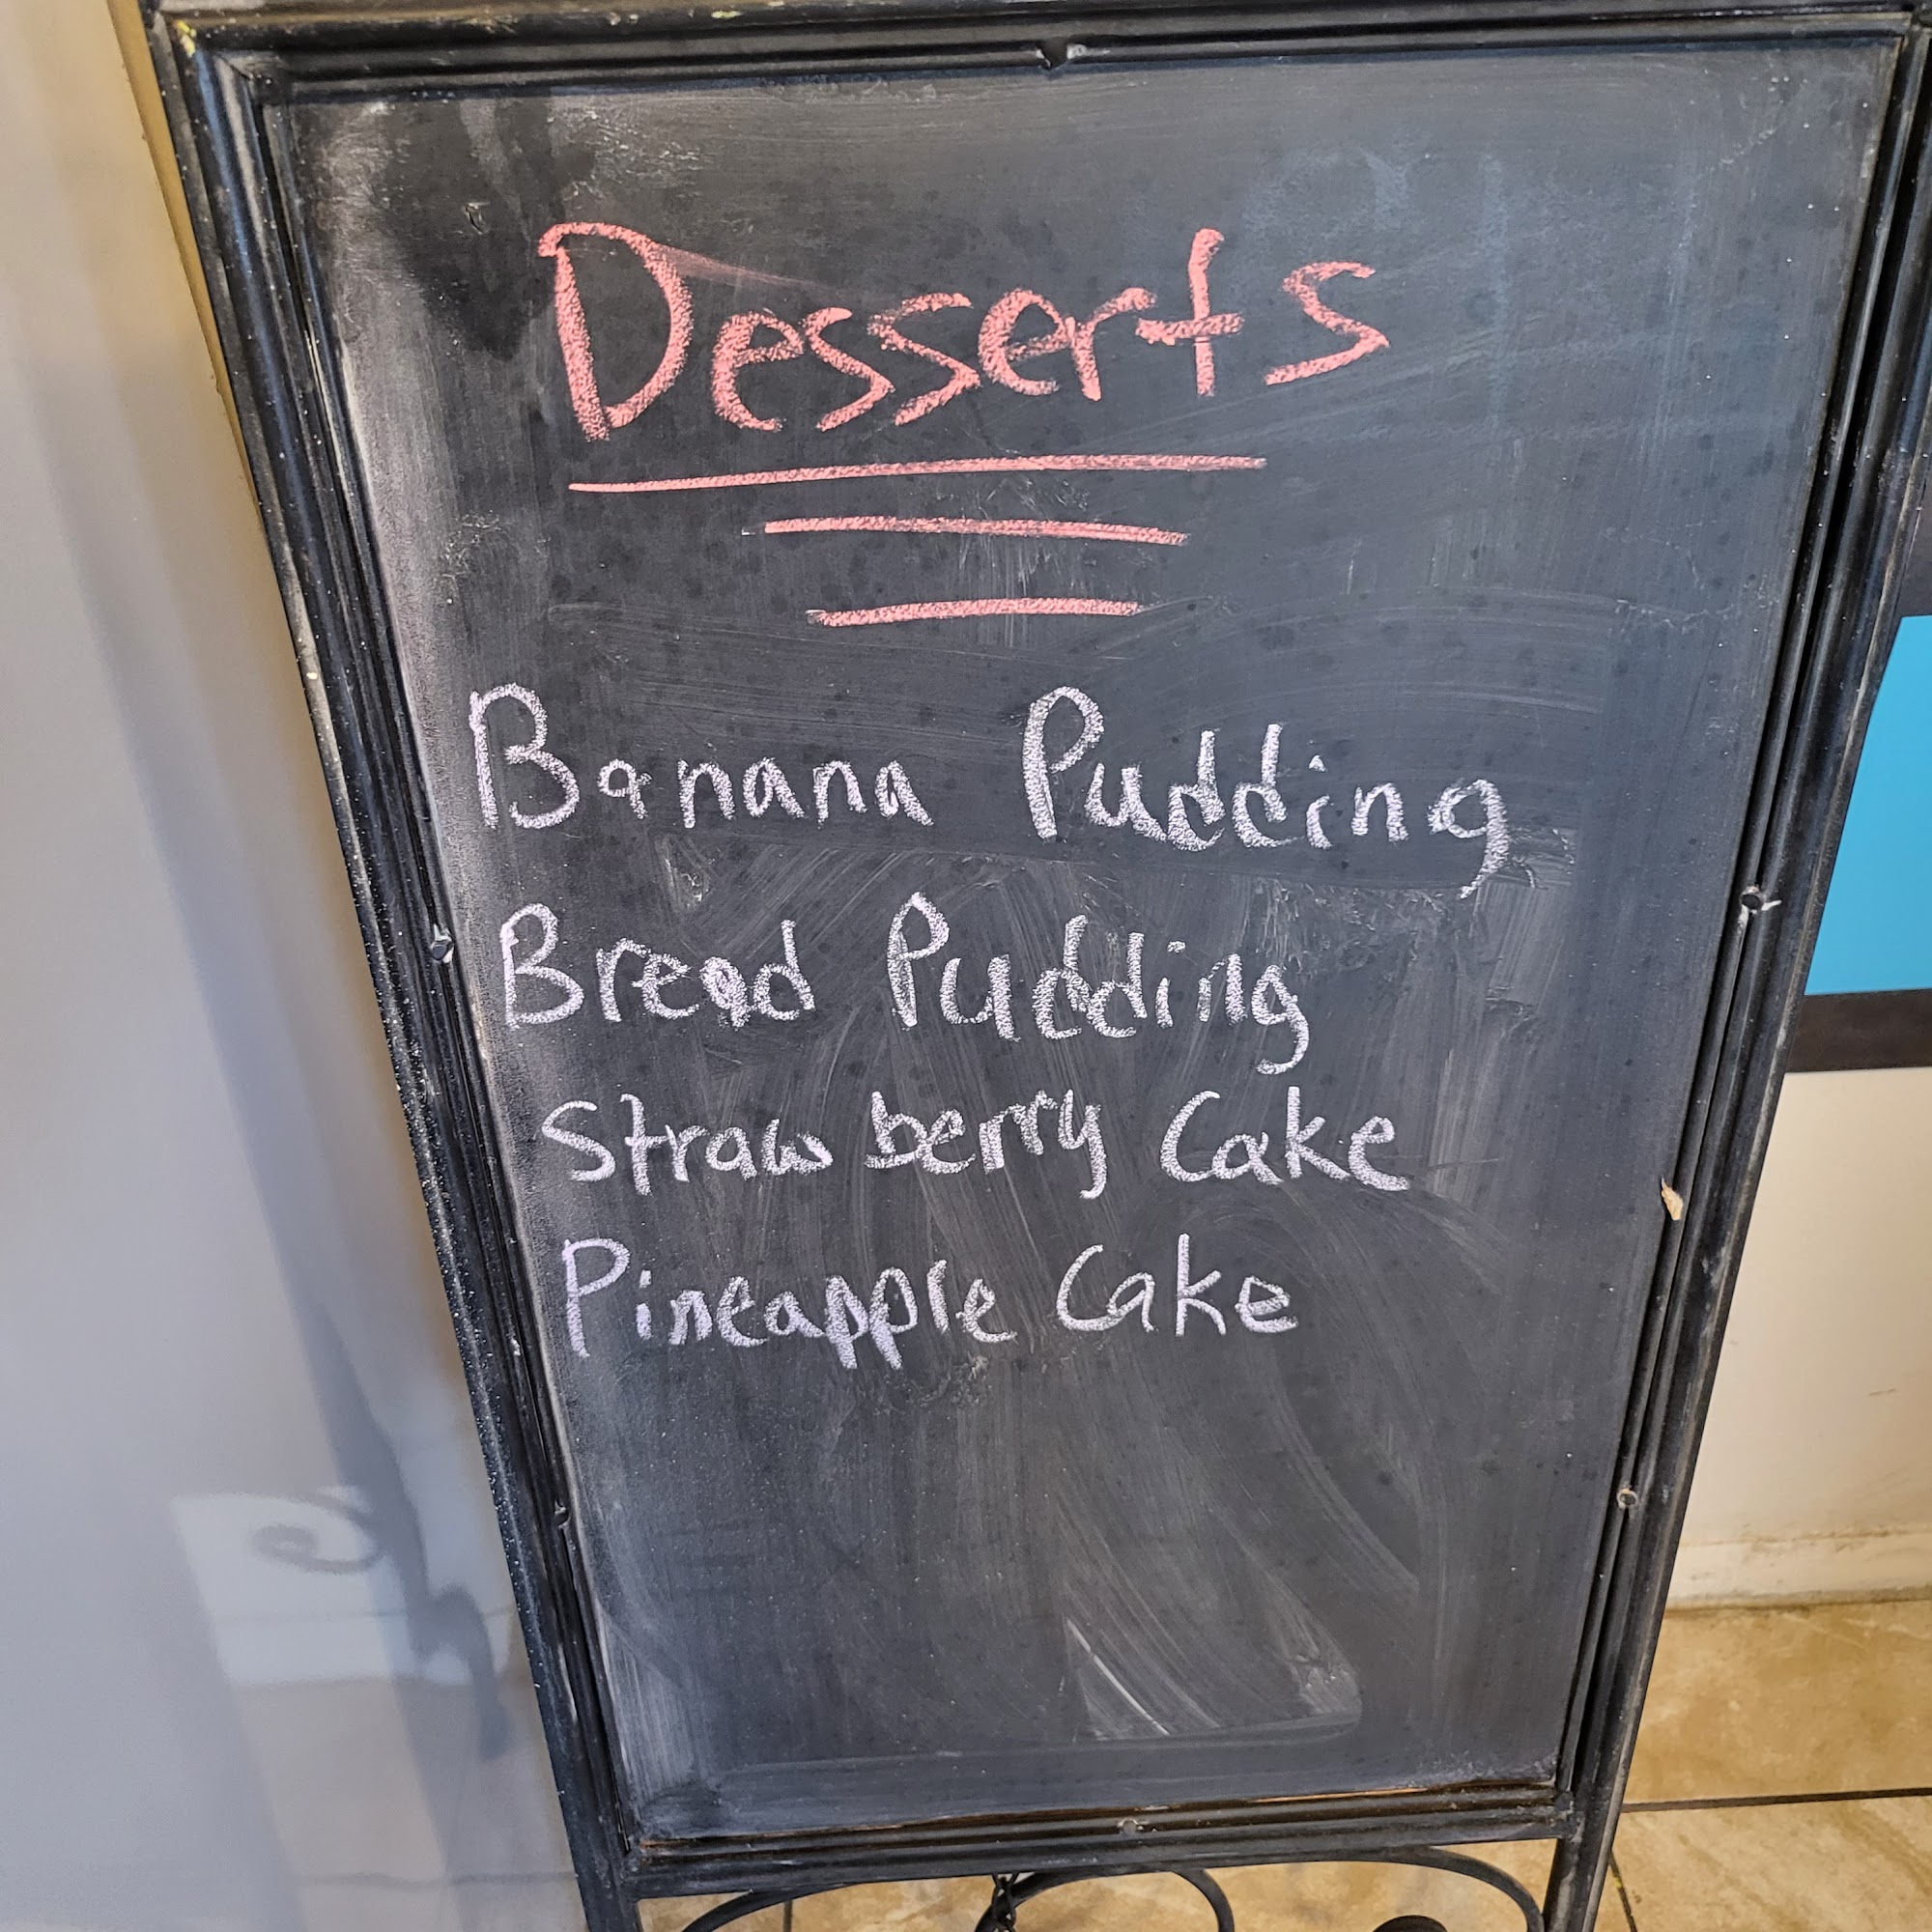 Desserts
Banana Pudding
Bread Pudding
Strawberry Cake
Pineapple Cake